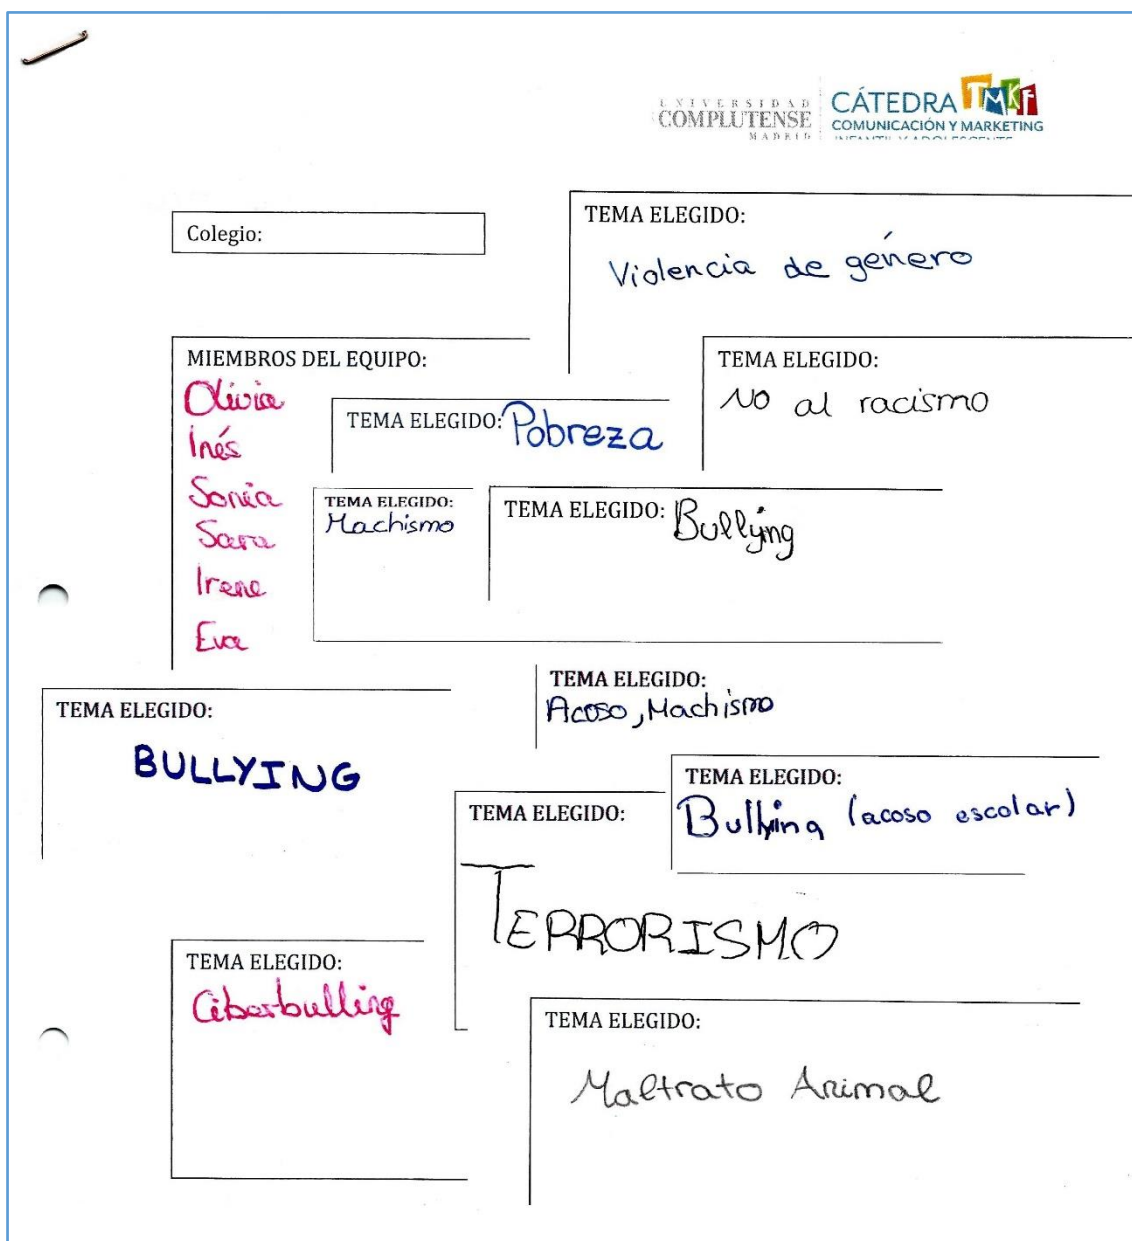 UNIVERSIDAD
COMPLUTENSE
MADRID
CÁTEDRA TMKF
COMUNICACIÓN Y MARKETING
INFANTIL Y ADOLESCENTE
Colegio:
TEMA ELEGIDO:
Violencia de género
MIEMBROS DEL EQUIPO:
Olivia
Inés
Sonia
Sara
Irene
Eva
TEMA ELEGIDO:
No al racismo
TEMA ELEGIDO: Pobreza
TEMA ELEGIDO:
Machismo
TEMA ELEGIDO: Bullying
TEMA ELEGIDO:
Acoso, Machismo
TEMA ELEGIDO:
BULLYING
TEMA ELEGIDO:
Bullying (acoso escolar)
TEMA ELEGIDO:
TERRORISMO
TEMA ELEGIDO:
Ciberbulling
TEMA ELEGIDO:
Maltrato Animal